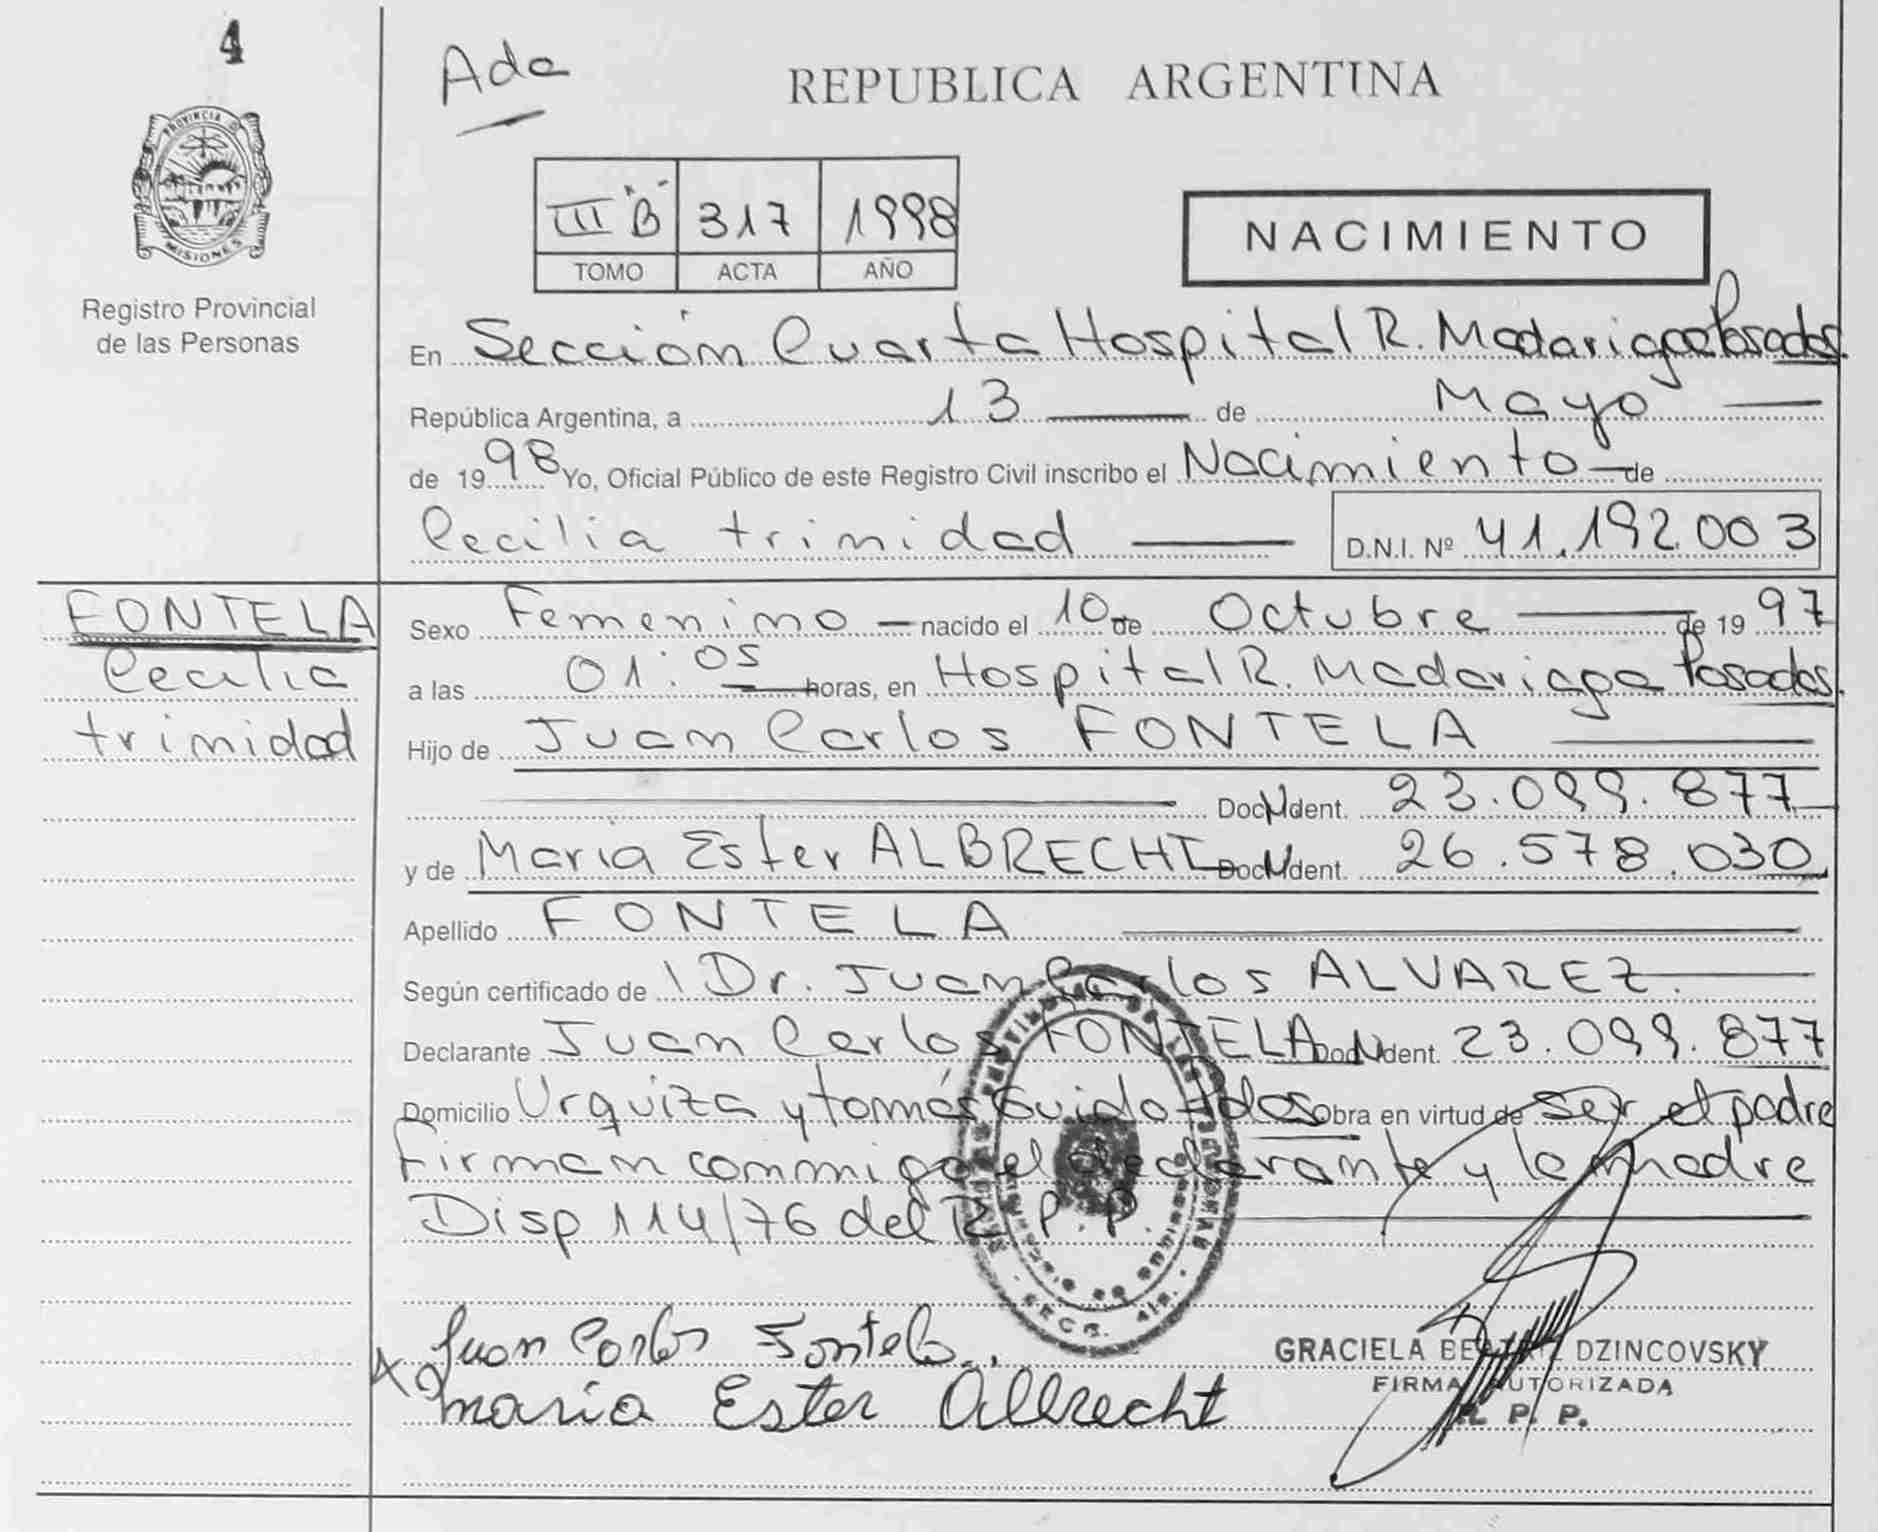 4
Ada
REPUBLICA ARGENTINA
PROVINCIA D
MISIONES
Registro Provincial
de las Personas
III "B" 317 1998
TOMO ACTA AÑO
NACIMIENTO
En Sección Cuarta Hospital R. Madariaga Posadas.
República Argentina, a 13 de Mayo
de 1998 Yo, Oficial Público de este Registro Civil inscribo el Nacimiento de
Cecilia trinidad D.N.I. Nº 41.192.003
FONTELA
Cecilia
trinidad
Sexo Femenino nacido el 10 de Octubre de 1997
a las 01:05 horas, en Hospital R. Madariaga Posadas.
Hijo de Juan Carlos FONTELA
Doc. Ident. 23.099.877
y de Maria Ester ALBRECHT Doc. Ident. 26.578.030
Apellido FONTELA
Según certificado de Dr. Juan Carlos ALVAREZ.
Declarante Juan Carlos FONTELA Doc. Ident. 23.099.877
Domicilio Urquiza y tomás Guido Pdas Obra en virtud de ser el padre
Firman conmigo el declarante y la madre
Disp 114/76 del R.P.P.
Juan Carlos Fontela
maria Ester Albrecht
GRACIELA BEATRIZ DZINCOVSKY
FIRMA AUTORIZADA
R. P. P.